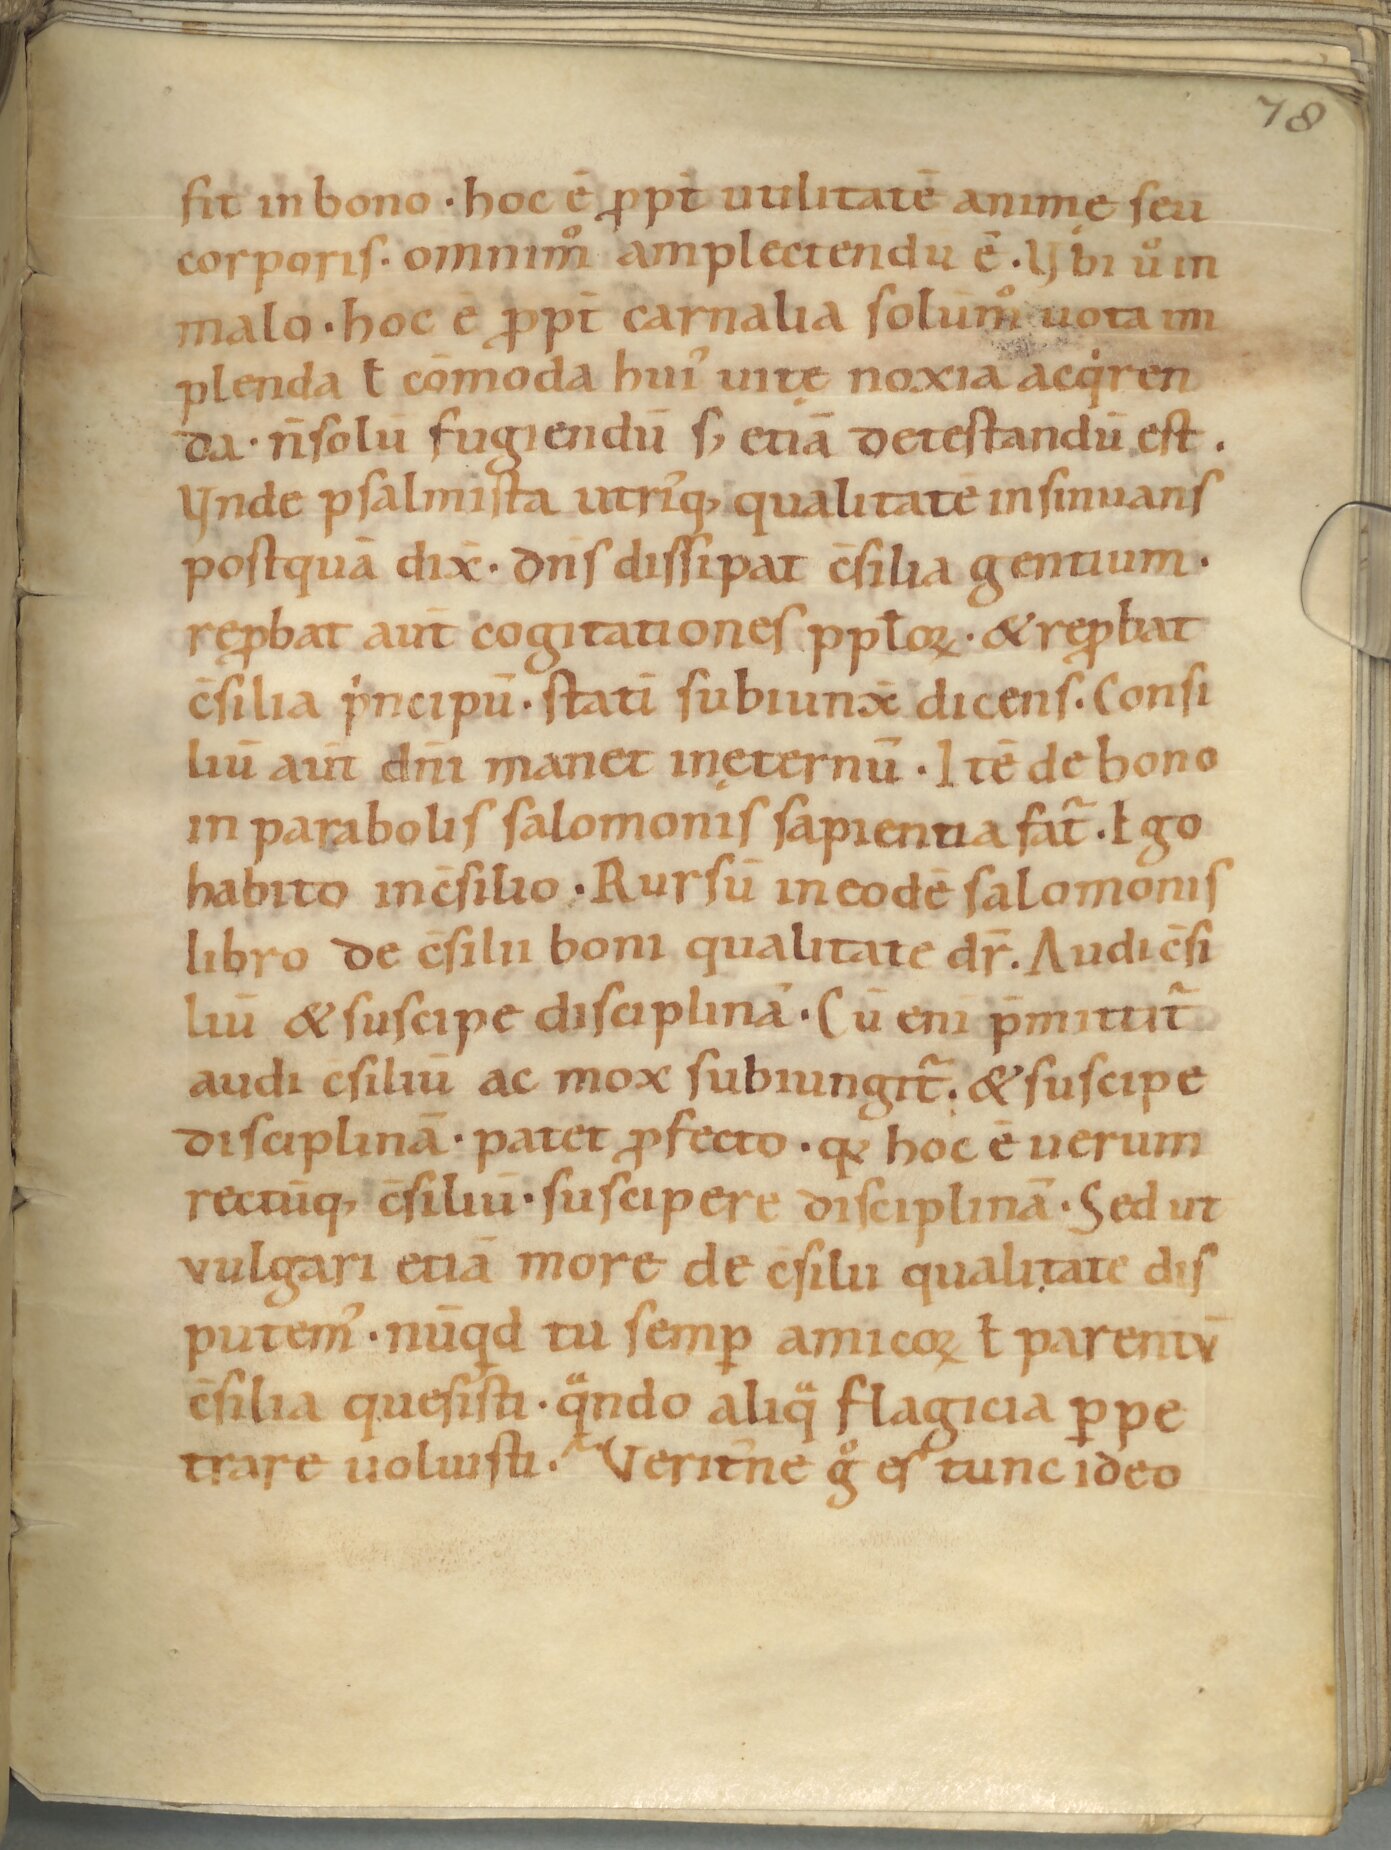 78
sit in bono · hoc ē ꝓpt̄ utilitatē animę seu
corporis · omnim̊ amplectendū ē · Vbi ů in
malo · hoc ē ꝓpt̄ carnalia solūm̊ uota im
plenda ł cōmoda hui᾽ uitę noxia acqͥren
da · n̄ solū fugiendū s; etiā detestandū est ·
Vnde psalmista utri᾽q; qualitatē insinuans
postquā dix̄ · dn̄s dissipat c̄silia gentium ·
reꝓbat aut̄ cogitationes ppłoꝝ · & reꝓbat
c̄silia pͥncipū · statī subiunx̄ dicens · Consi
liū aut̄ dn̄i manet inęternū · Itē de bono
in parabolis salomonis sapientia fat᷑ · Ego
habito in c̄silio · Rursū in eodē salomonis
libro de c̄silii boni qualitate dr̄ · Audi c̄si
liū & suscipe disciplinā · Cū enī p̄mittit᷑
audi c̄siliū ac mox subiungit᷑ · & suscipe
disciplinā · patet ꝓfecto · qꝫ hoc ē uerum
rectūq; c̄siliū · suscipere disciplinā · Sed ut
vulgari etiā more de c̄silii qualitate dis
putem᾽ · nūqd tu semꝑ amicoꝝ ł parentū
c̄silia quesisti · qͣndo aliqͣ flagicia ꝑpe
trare uoluisti · Verit᾽ne g̊ es tunc ideo